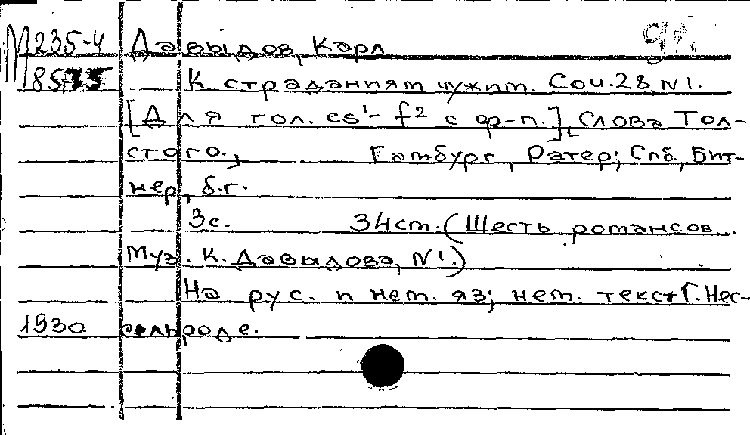 М235-4 Давыдов, Карл
18575 К страданиям чужим. Соч. 28 N1.
[Для гол. es¹- f² с ф-п.], Слова Тол-
стого., Гамбург, Ратер; Спб, Бит-
нер, б.г.
3с. 34см. (Шесть романсов...
Муз. К. Давыдова, N1.)
На рус. и нем. яз; нем. текст Г. Нес-
1930 сельроде.